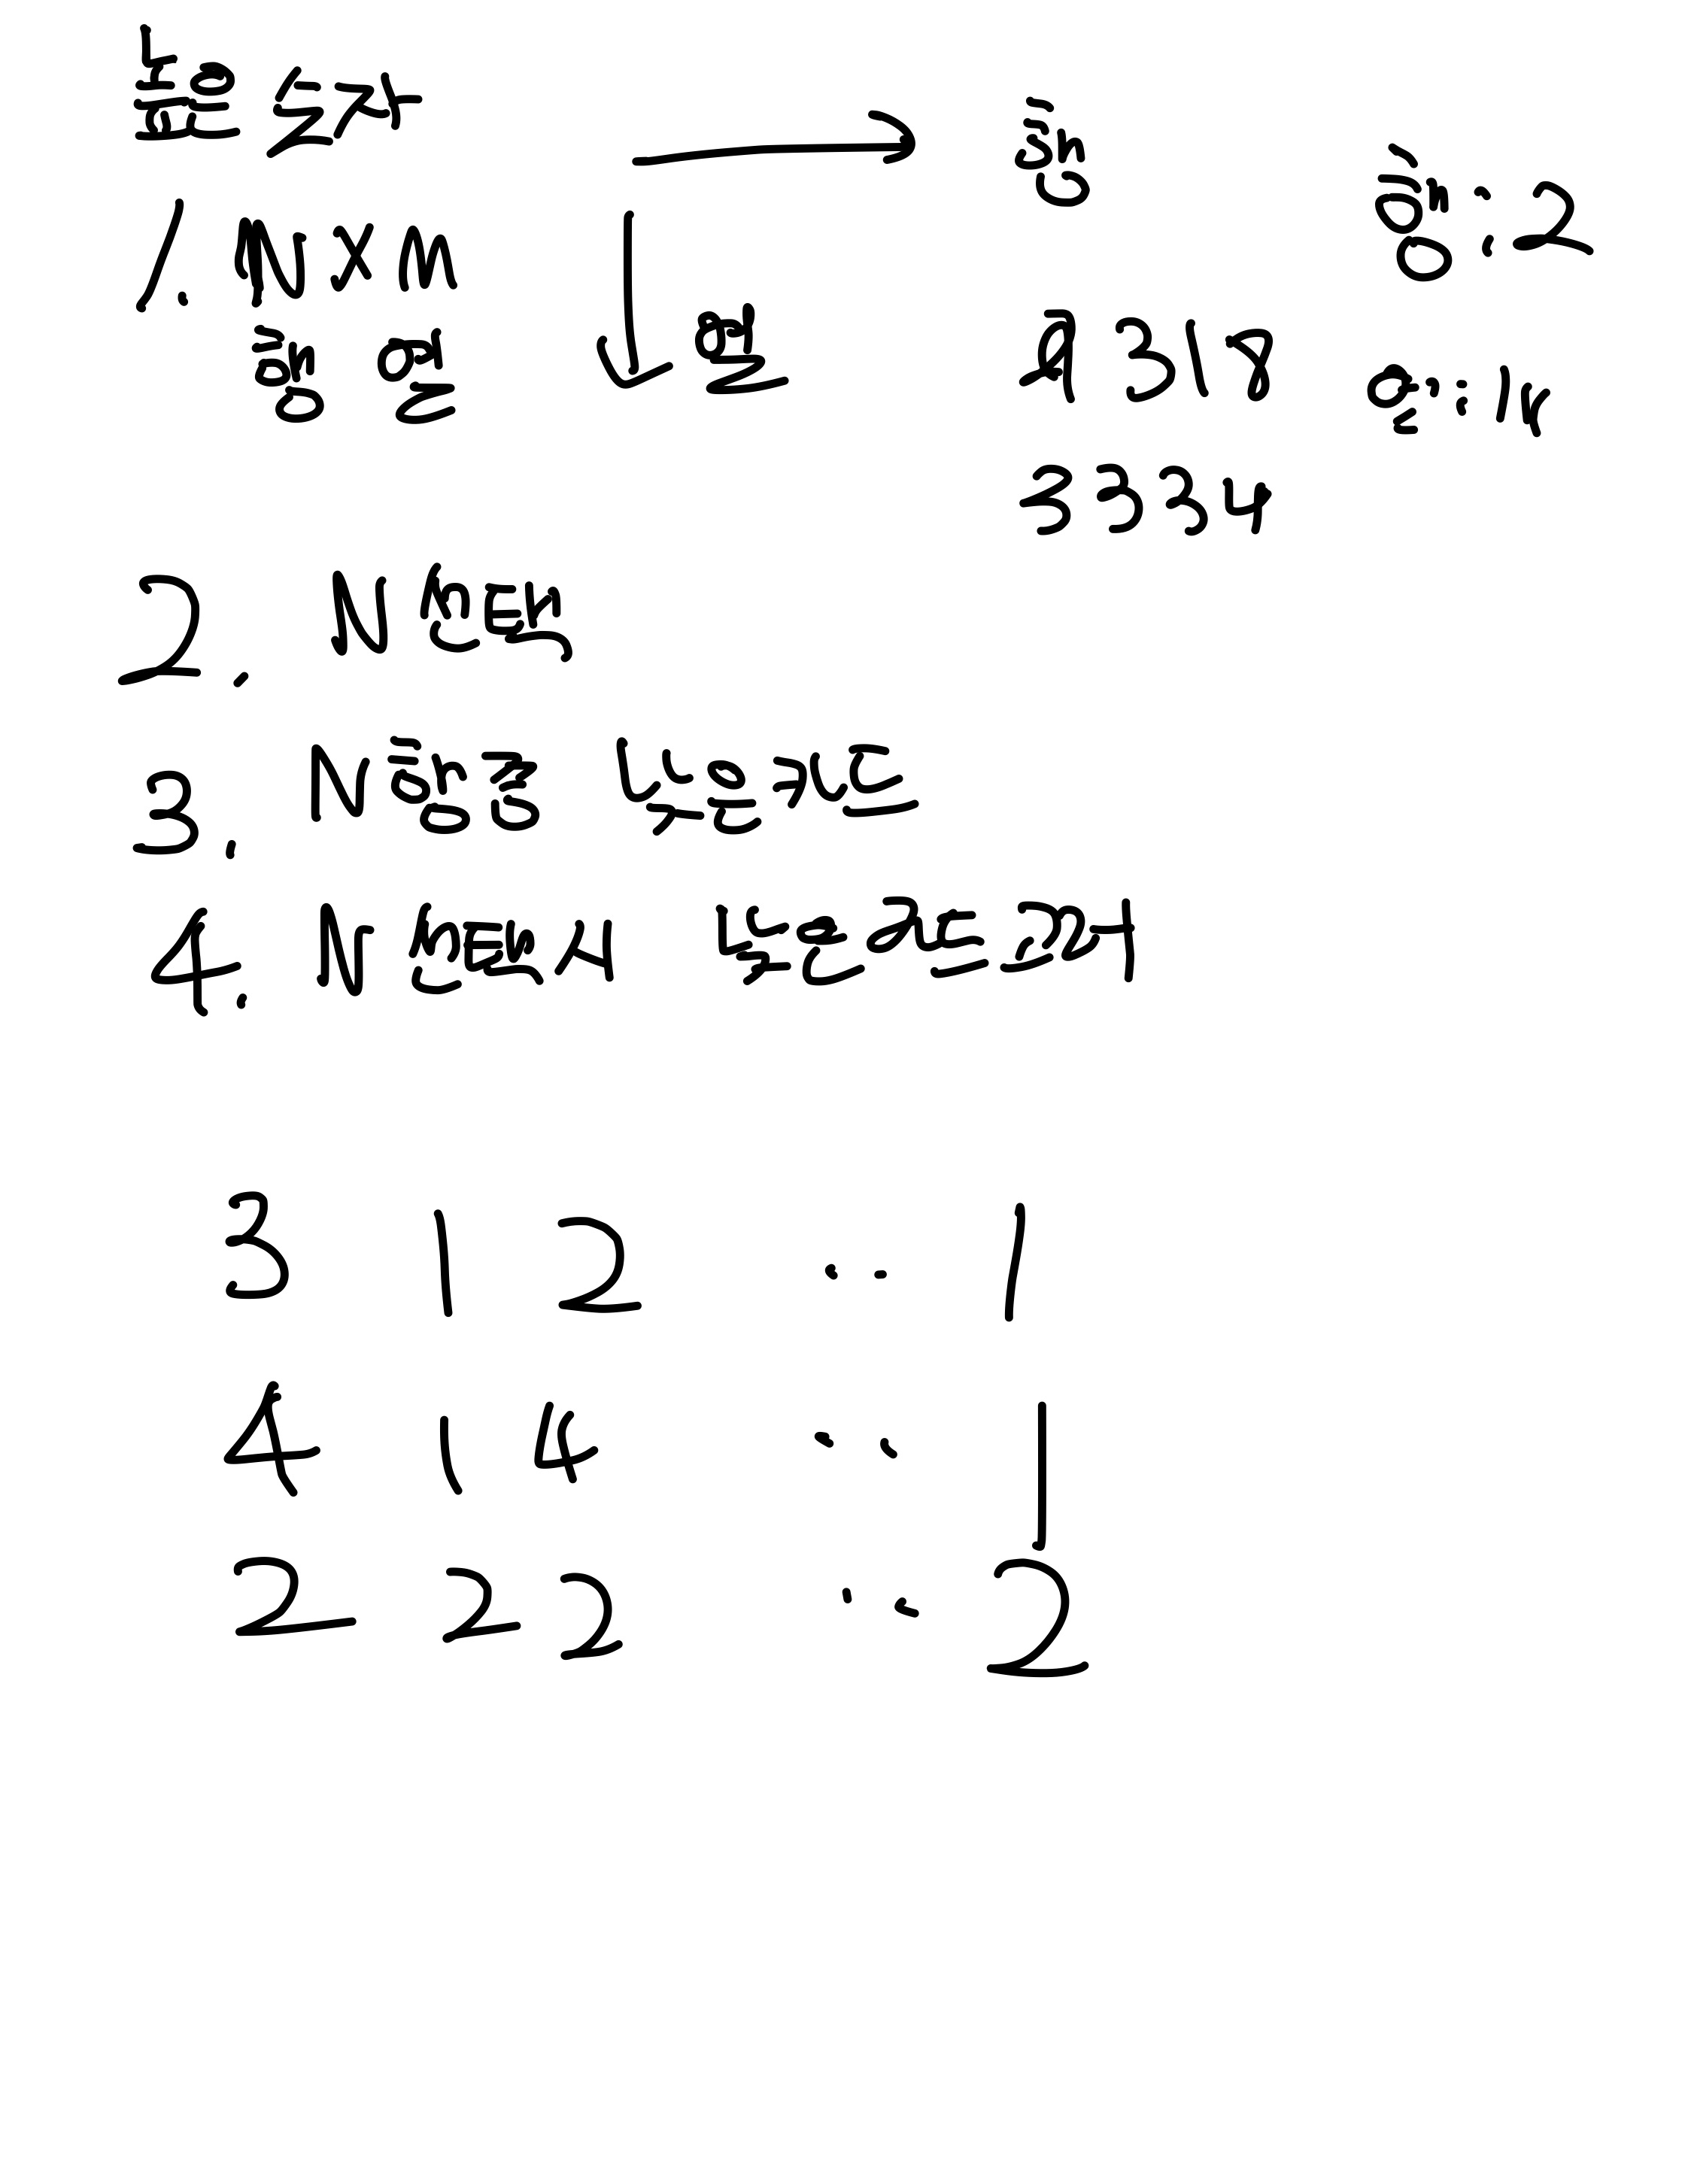 높은 숫자
행
1. N x M
행 열
열
행 : 2
열 : 4
7 3 1 8
3 3 3 4
2. N 선택
3. N행중 낮은카드
4. N 선택시 낮은카드 고려
3 1 2 .. 1
4 1 4 .. 1
2 2 2 .. 2